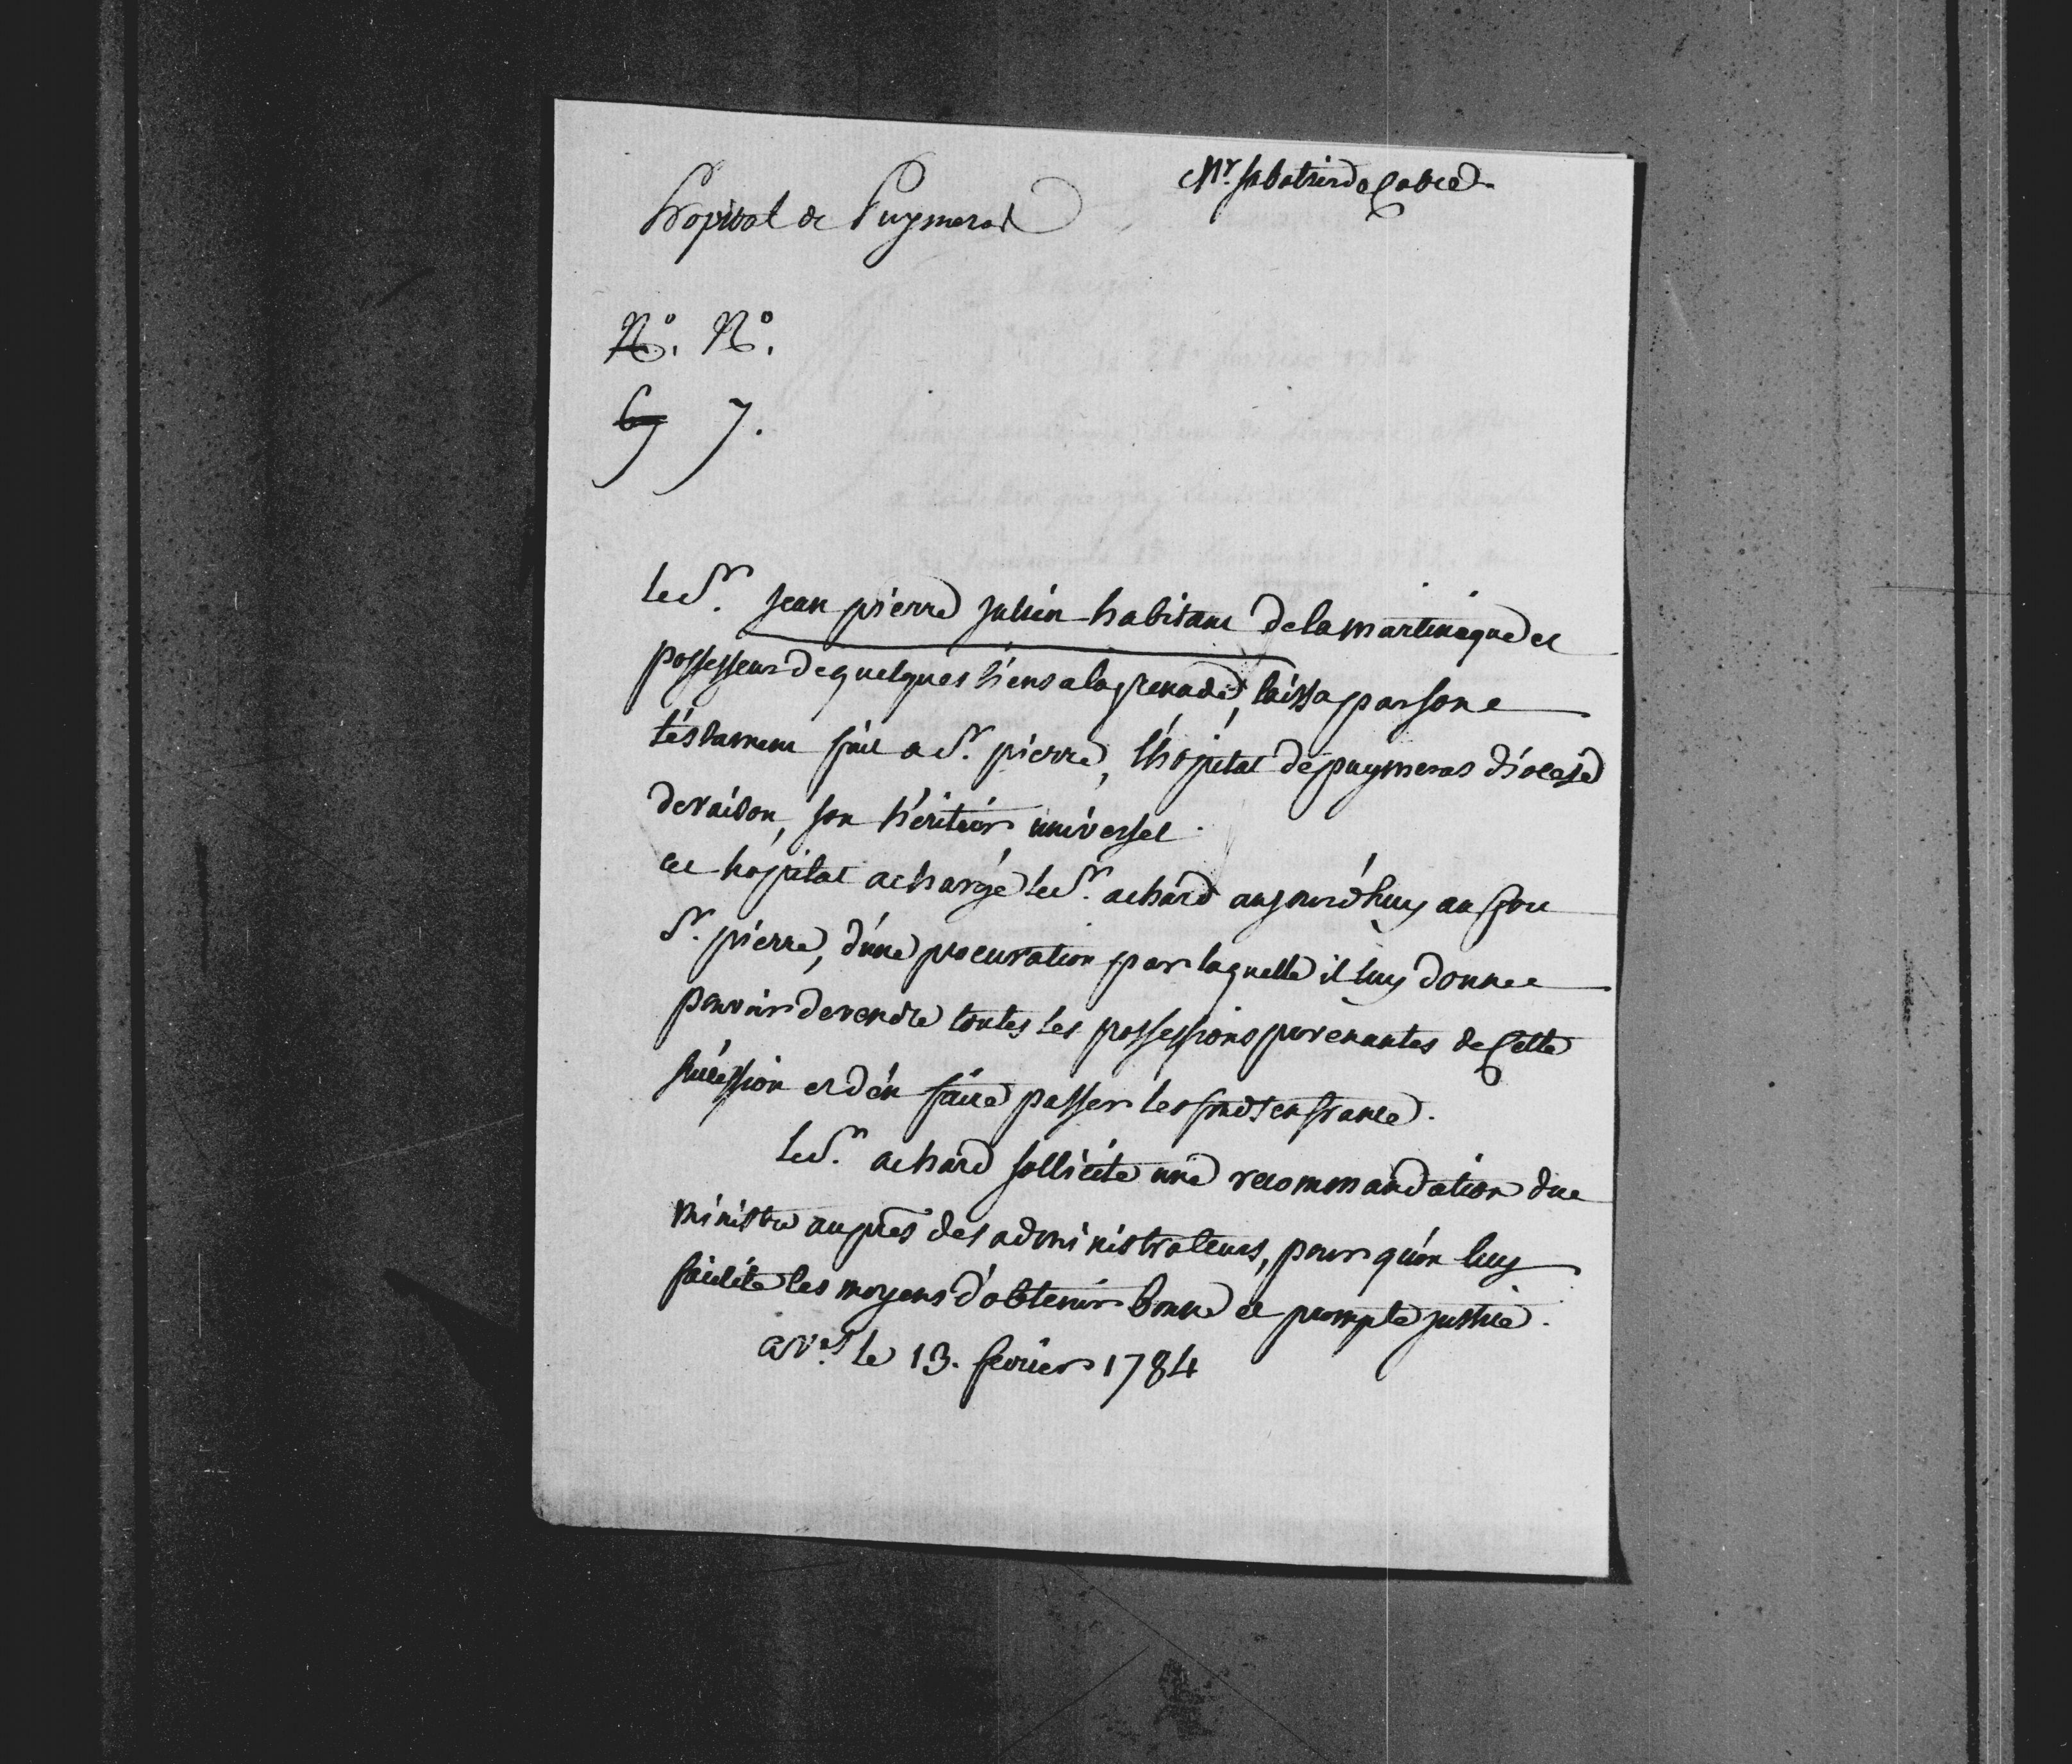 Mr. Sabatier de Cabre
Hopital de Puymeras
N°. N°.
6 7.
le Sr. jean pierre julien habitant de la martinique et
possesseur de quelques biens a la grenade, laissa par son
téstament fait a St. pierre, l'hôpital de puymeras diocese
de vaison, son héritier universel.
cet hôpital a chargé le Sr. achard aujourd'huy au fort
St. pierre, d'une procuration par laquelle il luy donne
pouvoir de vendre toutes les possessions provenantes de Cette
sucession et d'en faire passer les fonds en france.
le Sr. achard sollicite une recommandation du
ministre auprès des administrateurs, pour qu'on luy
facilite les moyens d'obtenir bonne et prompte justice.
a Vles le 13. fevrier 1784